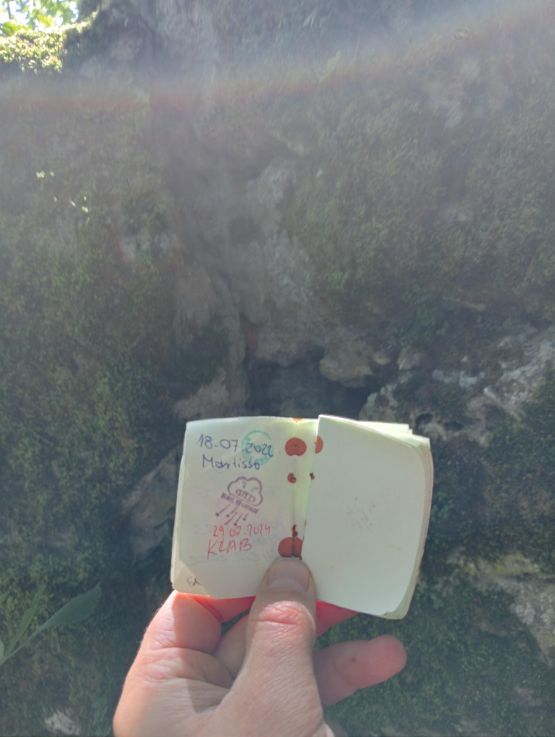 18-07.2022
Martisso
29.07.2024
KZAB